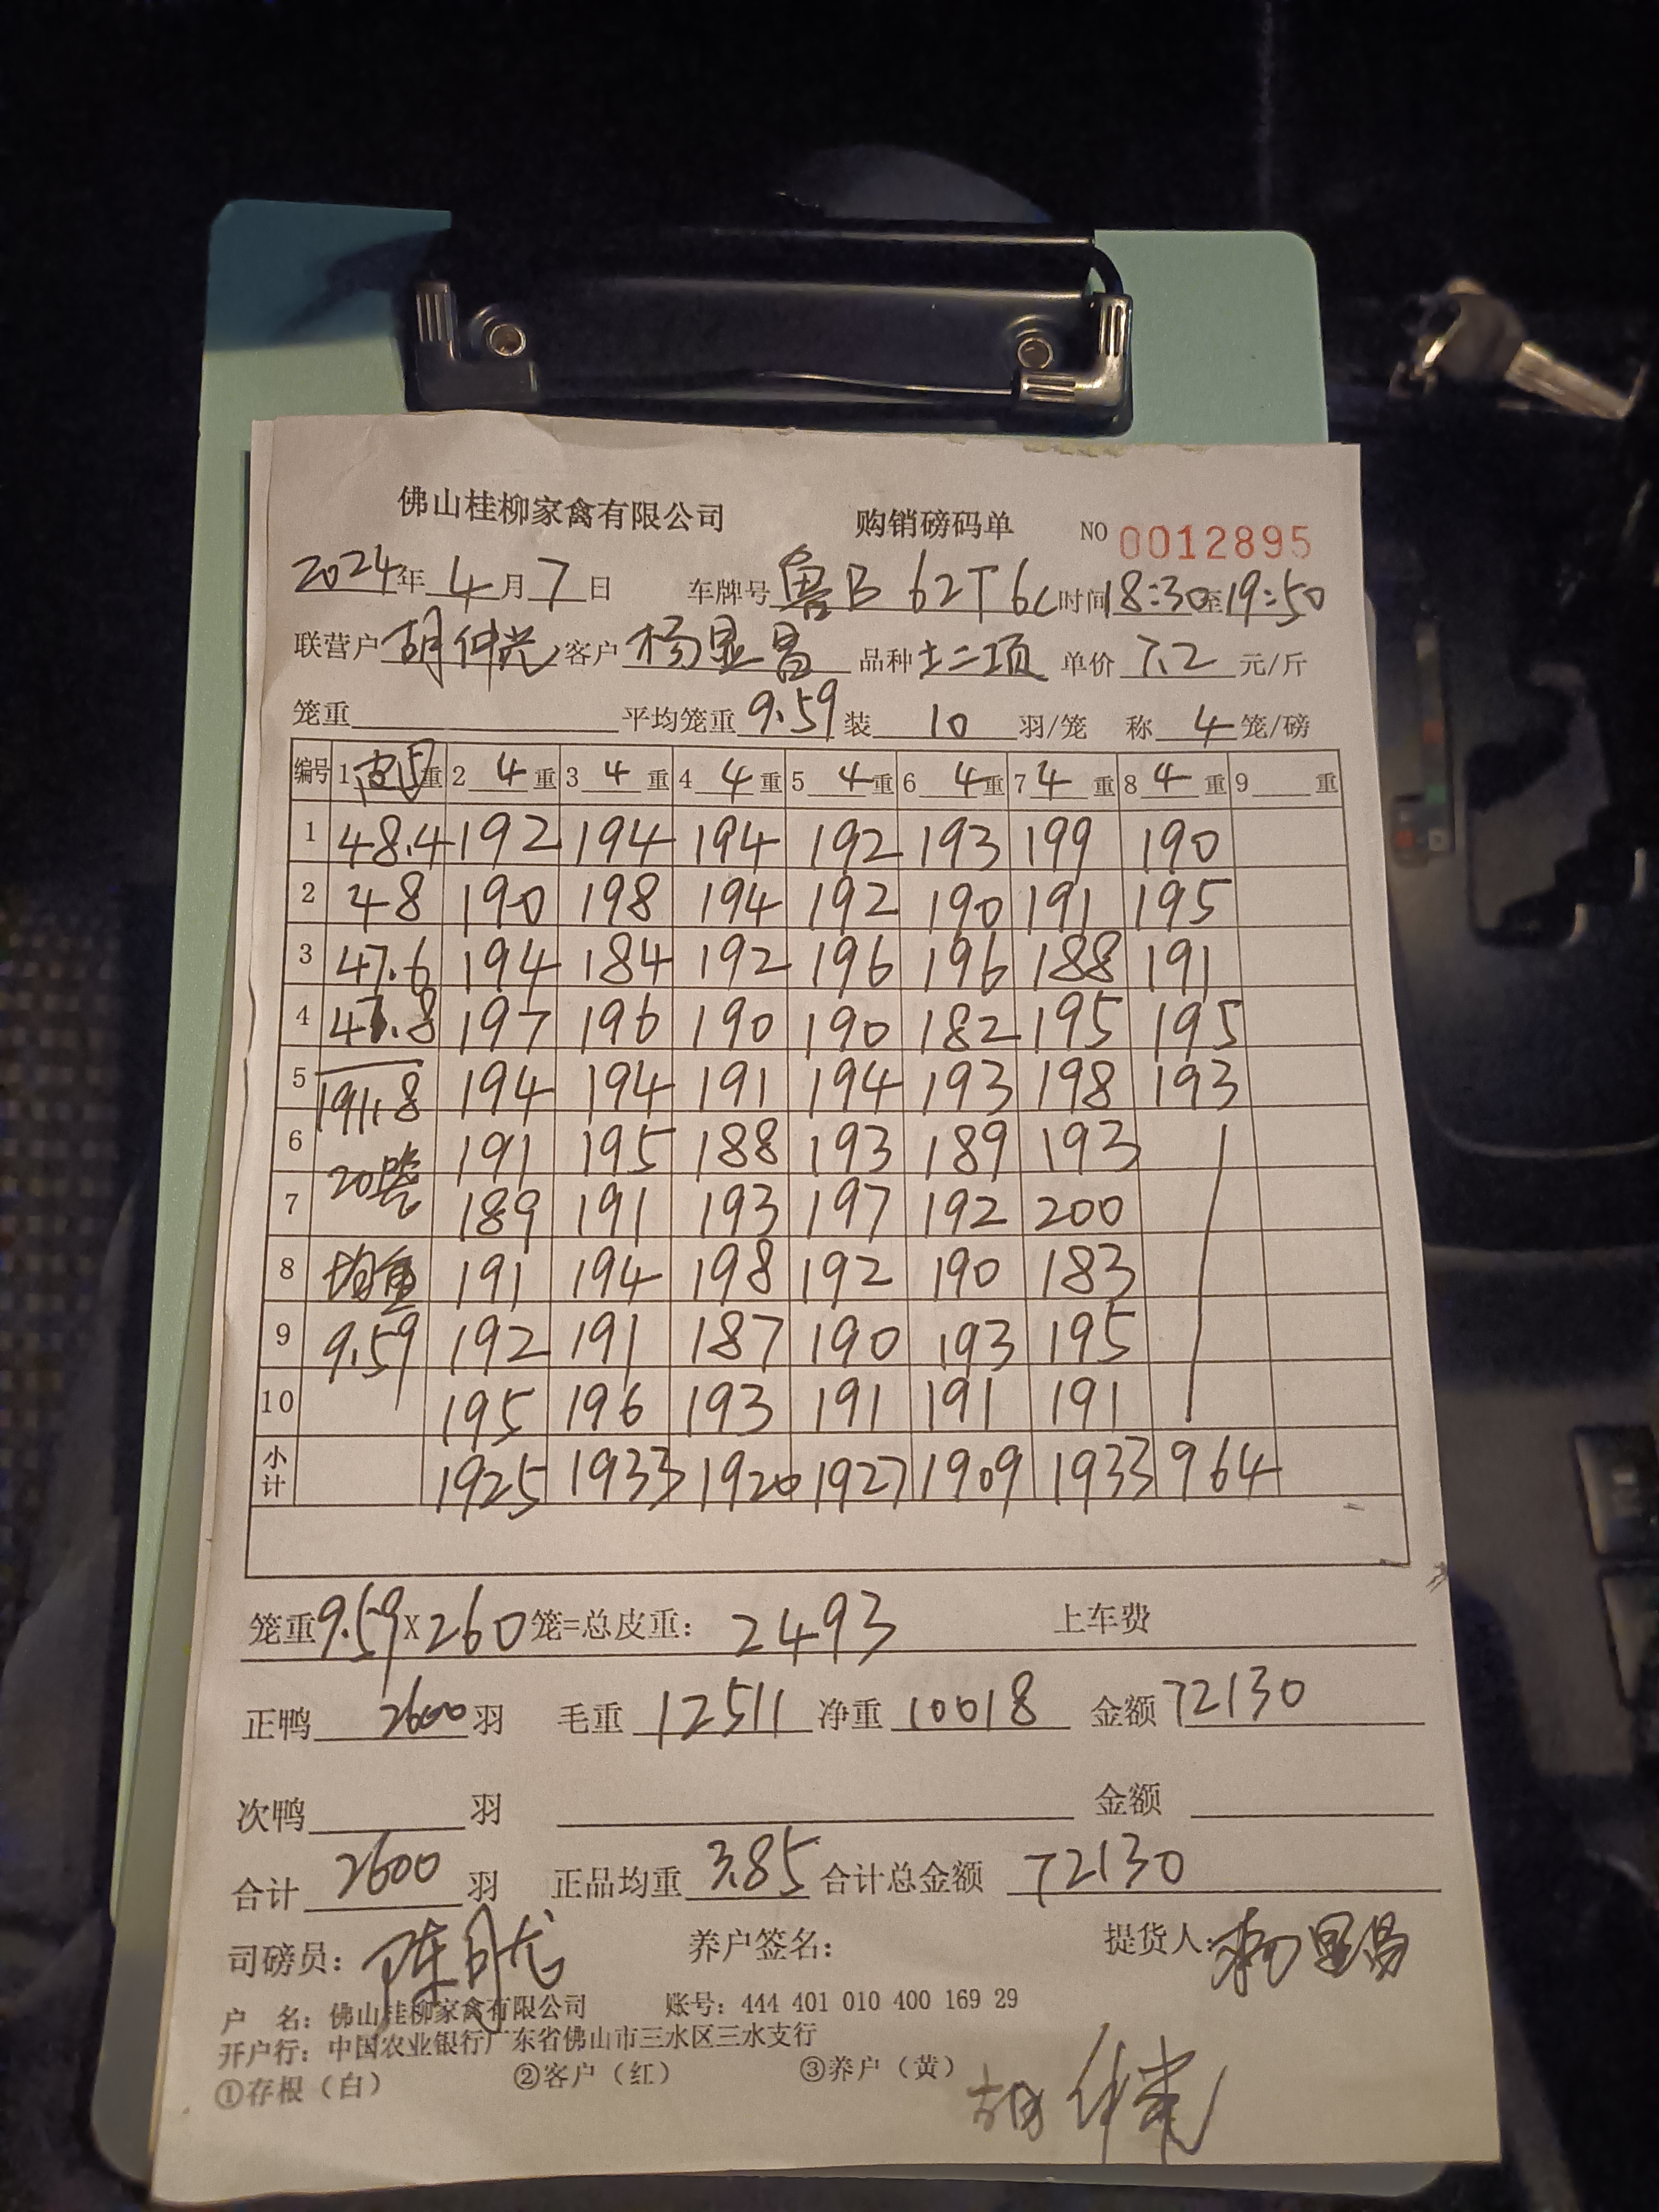 佛山桂柳家禽有限公司 购销磅码单 NO 0012895
2024年 4月 7日 车牌号 鲁B 62T6L 时间 18:30至19:50
联营户 胡仲光 客户 杨显昌 品种 土二项 单价 7.2 元/斤
笼重 平均笼重 9.59 装 10 羽/笼 称 4 笼/磅
编号 1 皮 重 2 4 重 3 4 重 4 4 重 5 4 重 6 4 重 7 4 重 8 4 重 9 重
1 48.4 192 194 194 192 193 199 190
2 48 190 198 194 192 190 191 195
3 47.6 194 184 192 196 196 188 191
4 47.8 197 196 190 190 182 195 195
5 191.8 194 194 191 194 193 198 193
6 20笼 191 195 188 193 189 193
7 189 191 193 197 192 200
8 均重 191 194 198 192 190 183
9 9.59 192 191 187 190 193 195
10 195 196 193 191 191 191
小计 1925 1933 1920 1927 1909 1933 964
笼重 9.59 X 260 笼=总皮重: 2493 上车费
正鸭 2600 羽 毛重 12511 净重 10018 金额 72130
次鸭 羽 金额
合计 2600 羽 正品均重 3.85 合计总金额 72130
司磅员: 养户签名: 提货人: 杨显昌
户 名: 佛山桂柳家禽有限公司 账号: 444 401 010 400 169 29
开户行: 中国农业银行广东省佛山市三水区三水支行
①存根（白） ②客户（红） ③养户（黄）
胡仲光